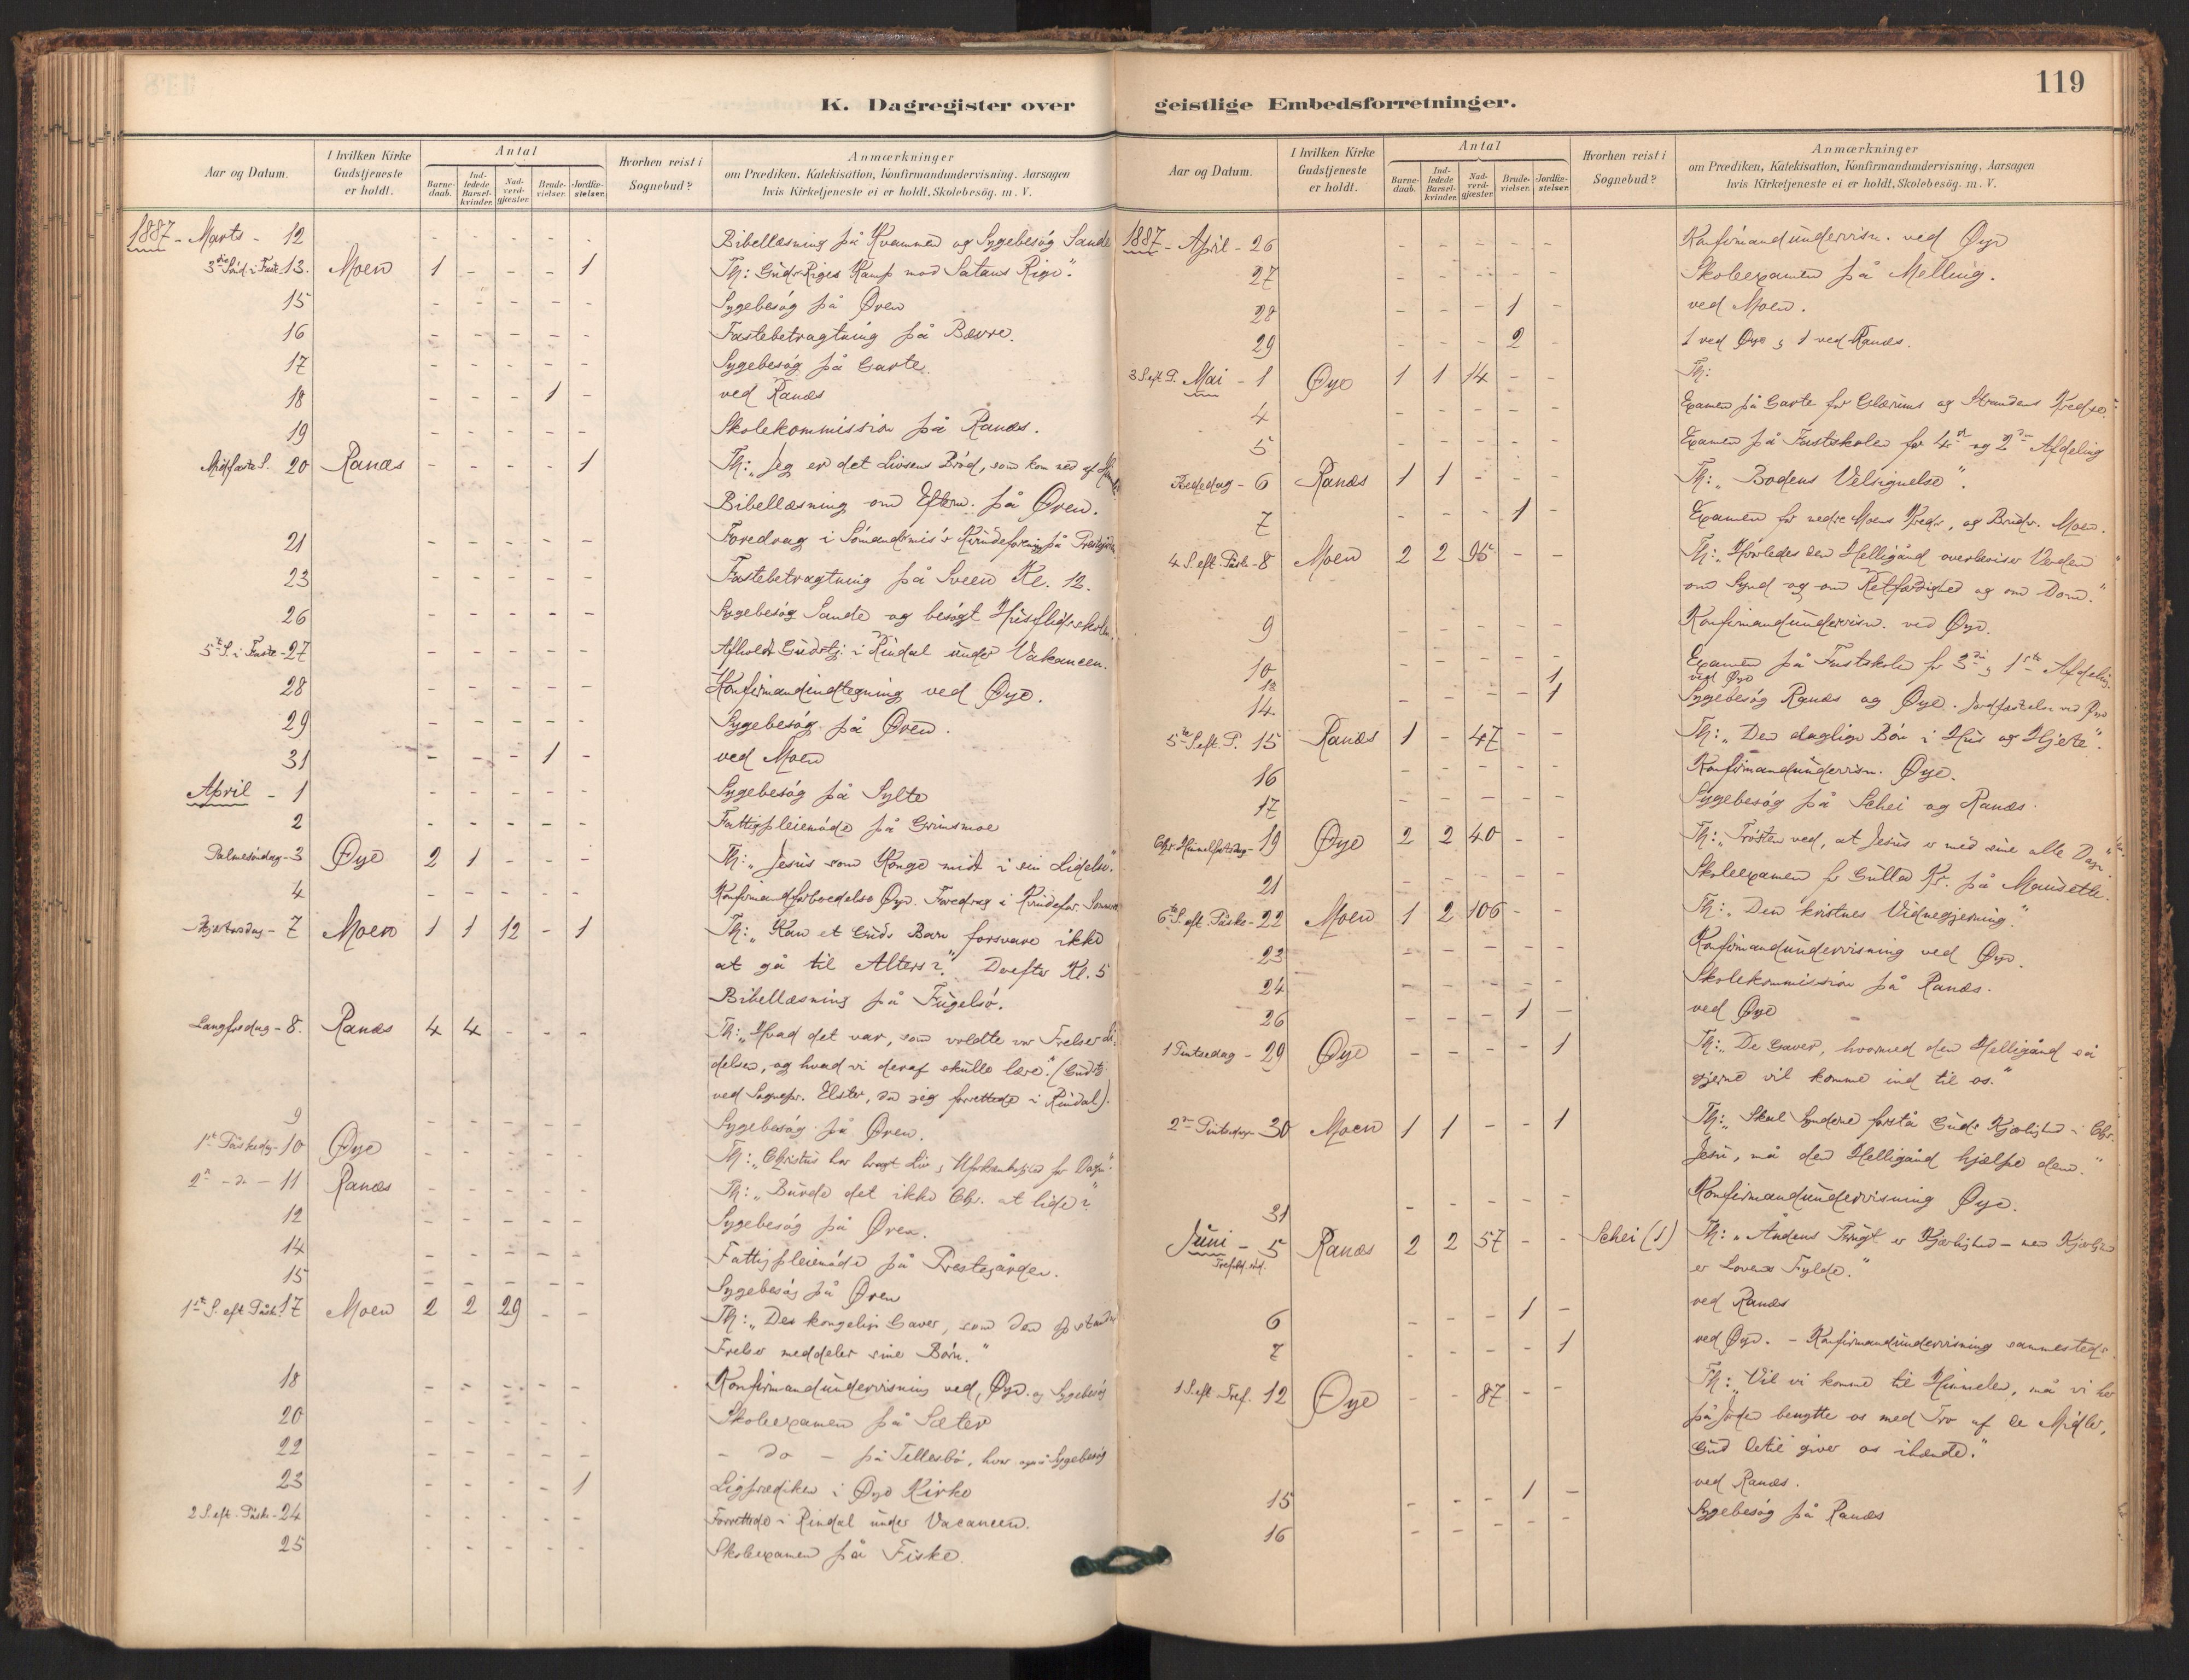 119
K. Dagregister over
geistlige Embedsforretninger.
Aar og Datum.
I hvilken Kirke Gudstjeneste er holdt.
Antal
Barne-daab.
Ind-ledede Barsel-kvinder.
Nad-verd-gjæster.
Brude-vielser.
Jordfæ-stelser.
Hvorhen reist i Sognebud?
Anmærkninger
om Prædiken, Katekisation, Konfirmandundervisning, Aarsagen
hvis Kirketjeneste ei er holdt, Skolebesög. m. V.
1887 - Marts - 12 - - - - - Bibellæsning på Kvammen og Sygebesög Sande
3die Sönd. i Faste 13. Moen 1 - - - 1 Th: Guds Riges Kamp mod Satans Rige."
15 - - - - - Sygebesög på Øren
16 - - - - - Fastebetragtning på Bævre.
17 - - - - - Sygebesög på Garte.
18 - - - 1 - ved Ranæs
19 - - - - - Skolekommission på Ranæs.
Midfaste S. 20 Ranæs - - - - 1 Th: "Jeg er det Livsens Bröd, som kom ned af
Bibellæsning om Efterm. på Øren.
21 - - - - - Foredrag i Sömandsmis's Kvindeforening på
23 - - - - - Fastebetragtning på Sveen Kl. 12.
26 - - - - - Sygebesög Sande og besögt Husflidsskolen.
5te S. i Faste - 27 - - - - - Afholdt Gudstj. i Rindal under Vakancen.
28 - - - - - Konfirmandindtegning ved Øye.
29 - - - - - Sygebesög på Øren.
31 - - - 1 - ved Moen
April - 1 - - - - - Sygebesög på Sylte
2 - - - - - Fattigpleiemöde på Grimsmoe
Palmesöndag - 3 Øye 2 1 - - - Th: "Jesus som Konge midt i sin Lidelse."
4 - - - - - Konfirmandforberedelse Øye. Foredrag i Kvindefor.
Skjærtorsdag - 7 Moen 1 1 12 - 1 Th: "Kan et Guds Barn forsvare ikke
at gå til Alters?" Derefter Kl. 5
Bibellæsning på Fugelsö.
Langfredag - 8. Ranæs 4 4 - - - Th: "Hvad det var, som voldte vor Frelser Li-
delsen, og hvad vi deraf skulle lære." (Gudstj
ved Sognepr. Elster, da jeg forrettede i Rindal).
9 - - - - - Sygebesög på Øren.
1ste Påskedag - 10 Øye - - - - - Th: "Christus har bragt Liv og Uforkrænkelighed for Dagen".
2n - do - 11 Ranæs - - - - - Th: "Burde det ikke Chr. at lide?"
12 - - - - - Sygebesög på Øren.
14 - - - - - Fattigpleiemöde på Prestegården.
15 - - - - - Sygebesög på Øren
1ste S. eft. Påske 17 Moen 2 2 29 - - Th: "De kongelige Gaver, som den
Frelser meddeler sine Börn."
18 - - - - - Konfirmandundervisning ved Øye. og Sygebesög
20 - - - - - Skoleexamen på Sæter
22 - - - - - - do - på Tellesbö, hvor også Sygebesög
23 - - - - 1 Ligprædiken i Øye Kirke
2 S. eft. Påske - 24 - - - - - Forrettede i Rindal under Vacancen.
25 - - - - - Skoleexamen på Fiske.
Aar og Datum.
I hvilken Kirke Gudstjeneste er holdt.
Antal
Barne-daab.
Ind-ledede Barsel-kvinder.
Nad-verd-gjæster.
Brude-vielser.
Jordfæ-stelser.
Hvorhen reist i Sognebud?
Anmærkninger
om Prædiken, Katekisation, Konfirmandundervisning, Aarsagen
hvis Kirketjeneste ei er holdt, Skolebesög. m. V.
1887 - April - 26 - - - - - Konfirmandundervisn. ved Øye
27 - - - - - Skoleexamen på Melling.
28 - - - 1 - ved Moen.
29 - - - 2 - 1 ved Øye og 1 ved Ranæs.
3 S. eft. P. Mai - 1 Øye 1 1 14 - - Th:
4 - - - - - Examen på Garte for Glærums og Strandens Kredse.
5 - - - - - Examen på Fastskolen for 4de og 2den Afdeling
Bededag - 6 Ranæs 1 1 - - - Th: "Bodens Velsignelse".
7 - - - 1 - Examen for nedre Moens Kreds, og Brudv. Moen.
4 S. eft. Påske - 8 Moen 2 2 96 - - Th: "Hvorledes den Helligånd overbeviser Verden
om Synd og om Retfærdighed og om Dom."
9 - - - - - Konfirmandundervisn. ved Øye.
10 - - - - - Examen på Fastskolen for 3die og 1ste Afdeling.
13 1 ved Øye
14 - - - - 1 Sygebesög Ranæs og Øye. Jordfæstelse ved Øye
5te S. eft. P. 15 Ranæs 1 - 47 - - Th: "Den daglige Bön i Hus og Hjerte".
16 - - - - - Konfirmandundervisn. Øye.
17 - - - - - Sygebesög på Schei og Ranæs.
Chr. Himmelfartsdag - 19 Øye 2 2 40 - - Th: "Trösten ved, at Jesus er med sine alle Dage."
21 Skoleexamen for Gulla Kr. på Mauseth.
6te S. eft. Påske - 22 Moen 1 2 106 - - Th: "Den kristnes Vidnegjerning."
23 - - - - - Konfirmandundervisning ved Øye.
24 - - - - - Skolekommission på Ranæs.
26 - - - 1 - ved Øye
1 Pintsedag - 29 Øye - - - - 1 Th: "De Gaver, hvormed den Helligånd så
gjerne vil komme ind til os."
2n Pintsedag - 30 Moen 1 1 - - 1 Th: "Skal Synderne forstå Guds Kjærlighed i Chr.
Jesu, må den Helligånd hjælpe dem."
31 - - - - - Konfirmandundervisning Øye.
Juni - 5 Ranæs 2 2 57 - - Schei (1) Th: "Åndens Frugt er Kjærlighed - men Kjærlighed
Trefold. sönd. er Lovens Fylde."
6 - - - 1 - ved Ranæs
7 - - - - 1 ved Øye. - Konfirmandundervisning sammesteds.
1 S. eft. Tref. 12 Øye - - 87 - - Th: "Vil vi komme til Himmelen, må vi her
på Jorden benytte os med Tro af de Midler,
Gud dertil giver os ihænde."
15 - - - 1 - ved Ranæs.
16 - - - - - Sygebesög på Ranæs